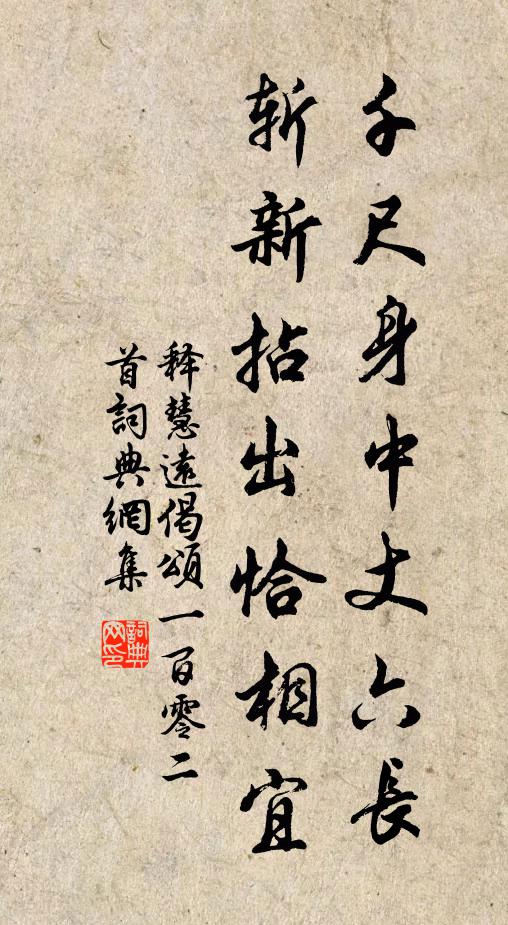 千尺身中丈六長
斬新拈出恰相宜
释慧遠偈頌一百零二
首詞典網集
詞典
网印